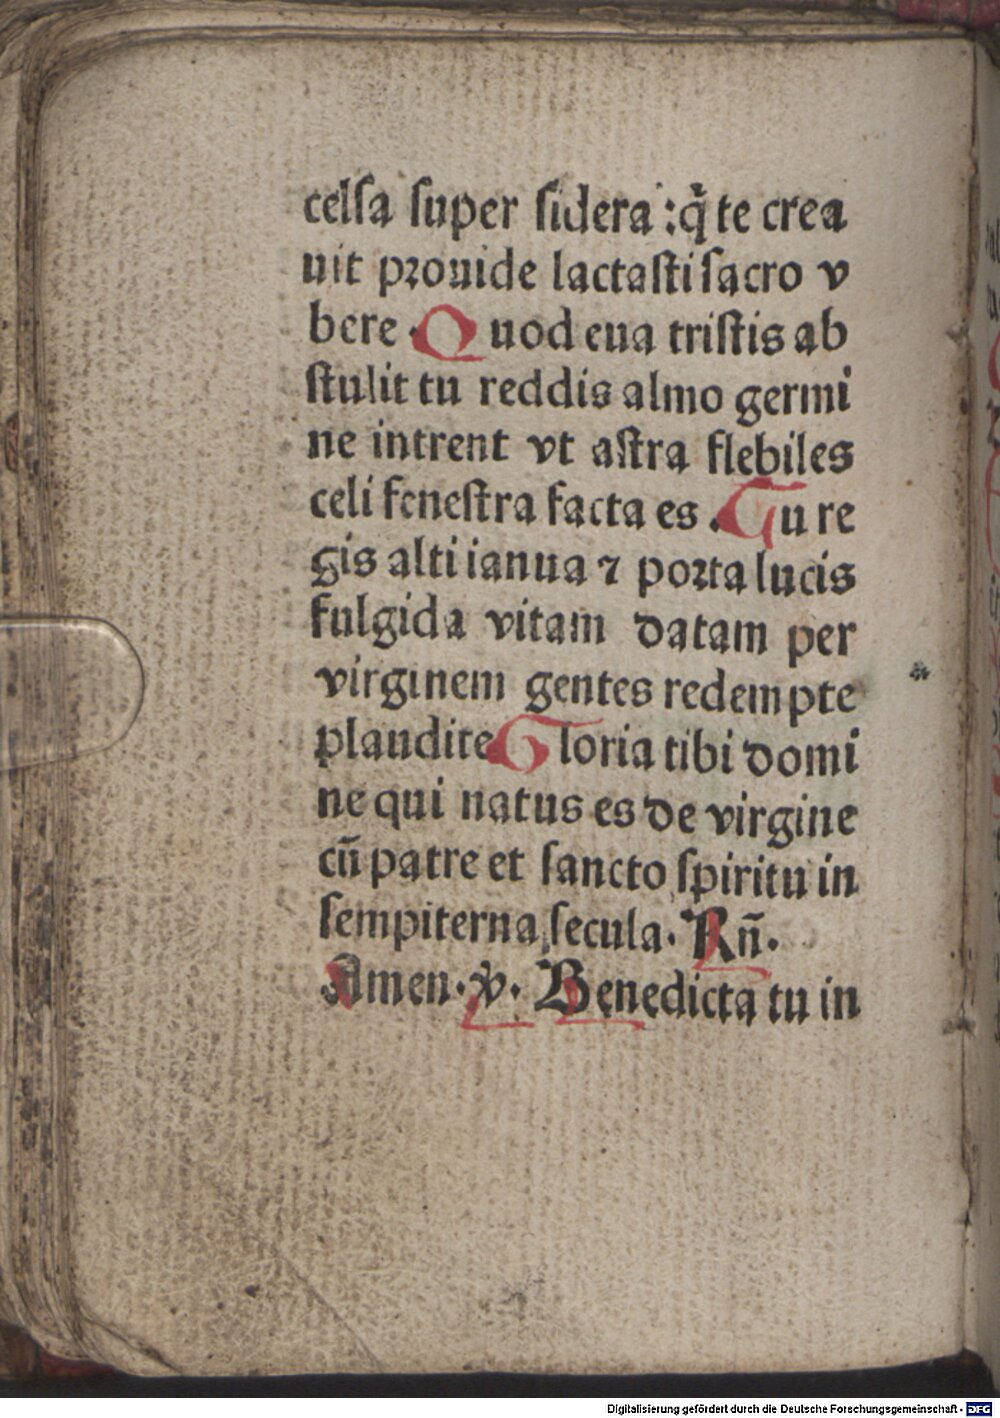 celsa super sidera :q̄ te crea
uit prouide lactasti sacro v
bere . Quod eua tristis ab
stulit tu reddis almo germi
ne intrent vt astra flebiles
celi fenestra facta es . Tu re
gis alti ianua ⁊ porta lucis
fulgida vitam datam per
virginem gentes redempte
plaudite Gloria tibi domi
ne qui natus es de virgine
cū patre et sancto spiritu in
sempiterna secula. Rn̄.
Amen. ℣. Benedicta tu in
Digitalisierung gefördert durch die Deutsche Forschungsgemeinschaft - DFG